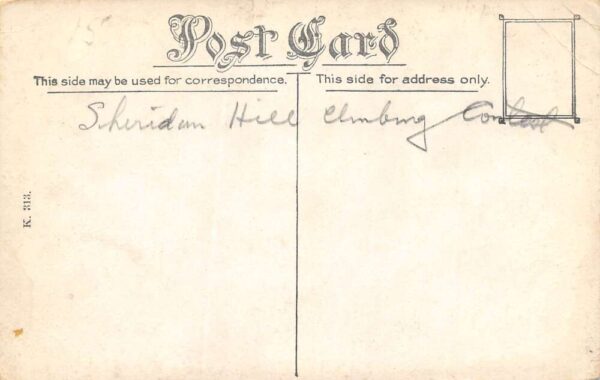 15
Post Card
This side may be used for correspondence.
This side for address only.
Sheridan Hill Climbing Contest
K. 313.